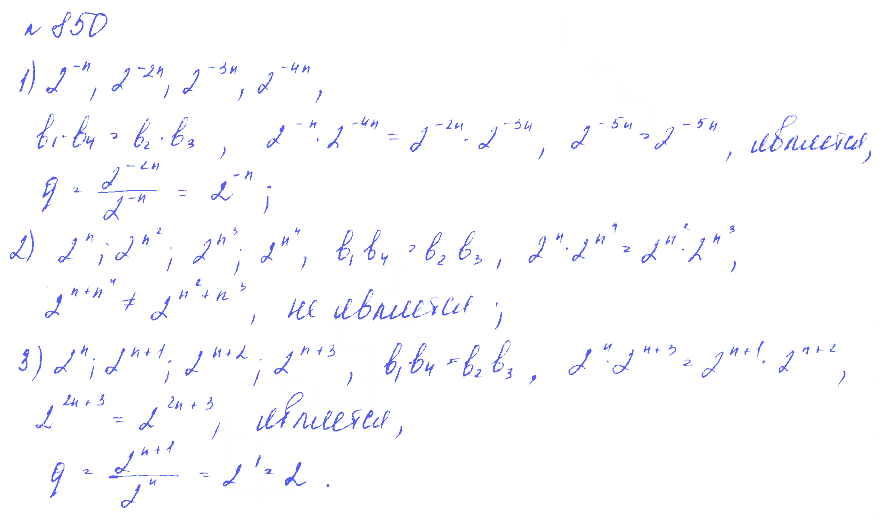 № 850
1) 2⁻ⁿ, 2⁻²ⁿ, 2⁻³ⁿ, 2⁻⁴ⁿ,
b₁·b₄ = b₂·b₃, 2⁻ⁿ·2⁻⁴ⁿ = 2⁻²ⁿ·2⁻³ⁿ, 2⁻⁵ⁿ = 2⁻⁵ⁿ, является,
q = 2⁻²ⁿ/2⁻ⁿ = 2⁻ⁿ;
2) 2^n; 2^n²; 2^n³; 2^n⁴, b₁b₄ = b₂b₃, 2^n·2^n⁴ = 2^n²·2^n³,
2^(n+n⁴) ≠ 2^(n²+n³), не является;
3) 2ⁿ; 2ⁿ⁺¹; 2ⁿ⁺²; 2ⁿ⁺³, b₁b₄ = b₂b₃, 2ⁿ·2ⁿ⁺³ = 2ⁿ⁺¹·2ⁿ⁺²,
2²ⁿ⁺³ = 2²ⁿ⁺³, является,
q = 2ⁿ⁺¹/2ⁿ = 2¹ = 2.